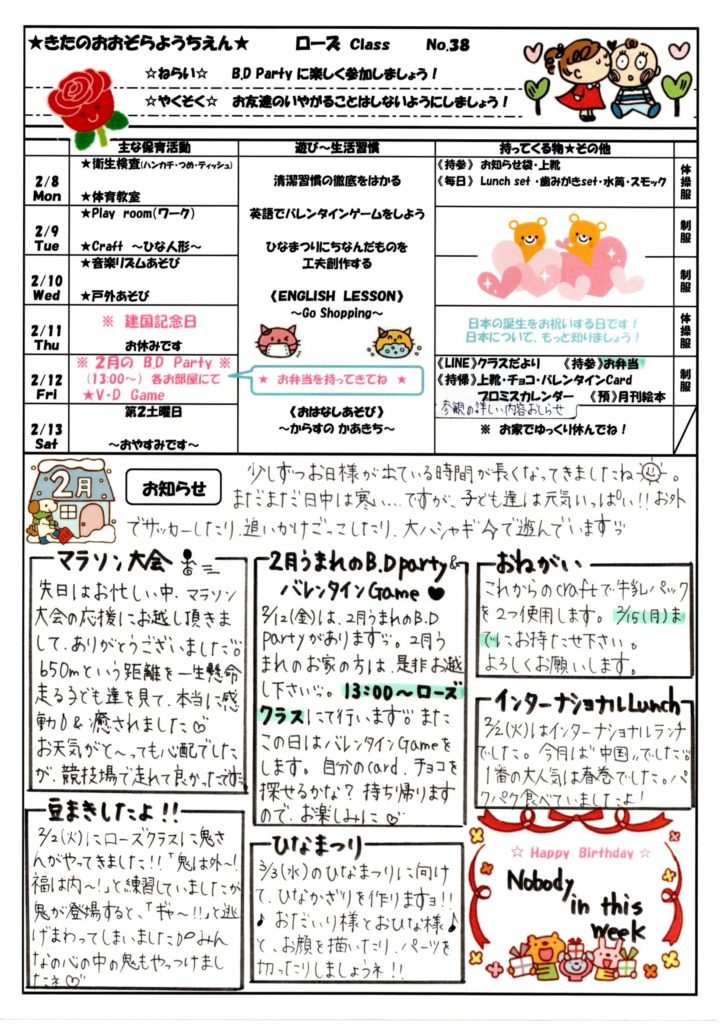 ★きたのおおぞらようちえん★　ローズ Class　No.38
☆ねらい☆　B.D Party に楽しく参加しましょう！
☆やくそく☆　お友達のいやがることはしないようにしましょう！
主な保育活動　遊び～生活習慣　持ってくる物★その他
2/8 Mon
★衛生検査(ハンカチ・つめ・ティッシュ)
★体育教室
清潔習慣の徹底をはかる
《持参》 お知らせ袋・上靴
《毎日》 Lunch set ・歯みがきset・水筒・スモック
体操服
2/9 Tue
★Play room(ワーク)
★Craft ～ひな人形～
英語でバレンタインゲームをしよう
ひなまつりにちなんだものを
工夫創作する
制服
2/10 Wed
★音楽リズムあそび
★戸外あそび
《ENGLISH LESSON》
～Go Shopping～
制服
2/11 Thu
※ 建国記念日
お休みです
日本の誕生をお祝いする日です！
日本について、もっと知りましょう！
体操服
2/12 Fri
※ 2月の B.D Party ※
(13:00～) 各お部屋にて
★V・D Game
★ お弁当を持ってきてね ★
《LINE》クラスだより　《持参》お弁当
《持帰》上靴・チョコ・バレンタインCard
プロミスカレンダー　《預》月刊絵本
参観の詳しい内容おしらせ
制服
2/13 Sat
第2土曜日
～おやすみです～
《おはなしあそび》
～からすの かあきち～
※ お家でゆっくり休んでね！
2月
お知らせ
少しずつお日様が出ている時間が長くなってきましたね。
まだまだ日中は寒い…ですが、子ども達は元気いっぱい!!お外
でサッカーしたり、追いかけごっこしたり、大ハシャギで遊んでいます
マラソン大会
先日はお忙しい中、マラソン
大会の応援にお越し頂きま
して、ありがとうございました。
650mという距離を一生懸命
走る子ども達を見て、本当に感
動&癒されました♡
お天気がと～っても心配でした
が、競技場で走れて良かったです
豆まきしたよ!!
2/2(火)にローズクラスに鬼さ
んがやってきました!!「鬼は外～!
福は内～!」と練習していましたが
鬼が登場すると、「ギャ～!!」と逃
げまわってしまいました みん
なの心の中の鬼もやっつけまし
たネ♡
2月うまれのB.D party&
バレンタインGame ♥
2/12(金)は、2月うまれのB.D
partyがあります。2月う
まれのお家の方は、是非お越
し下さい。13:00～ローズ
クラスにて行います また
この日はバレンタインGameを
します。自分のcard、チョコを
探せるかな? 持ち帰ります
ので、お楽しみに♡
ひなまつり
3/3(水)のひなまつりに向け
て、ひなかざりを作りますョ!!
♪おだいり様とおひな様♪
と、お顔を描いたり、パーツを
切ったりしましょうネ!!
おねがい
これからのcraftで牛乳パック
を2つ使用します。2/15(月)ま
でにお持たせ下さい。
よろしくお願いします。
インターナショナルLunch
2/2(火)はインターナショナルランチ
でした。今月は"中国"でした
1番の大人気は春巻でした。パ
クパク食べていましたよ!
☆ Happy Birthday ☆
Nobody
in this
week